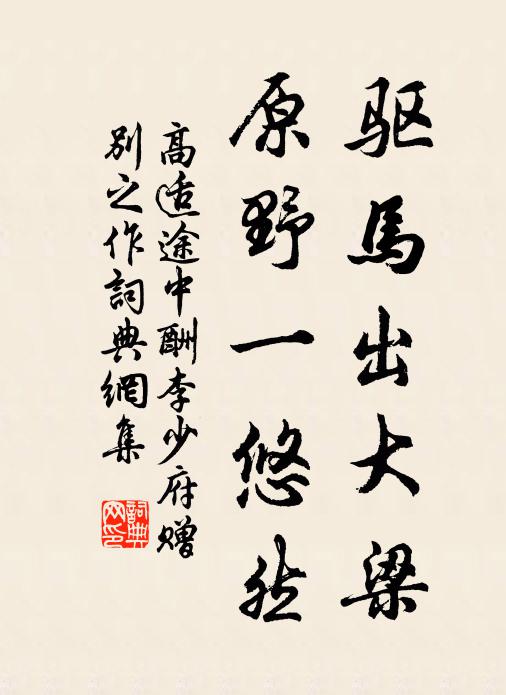 驱馬出大梁
原野一悠然
高适途中酬李少府赠
别之作詞典網集
詞典
网印